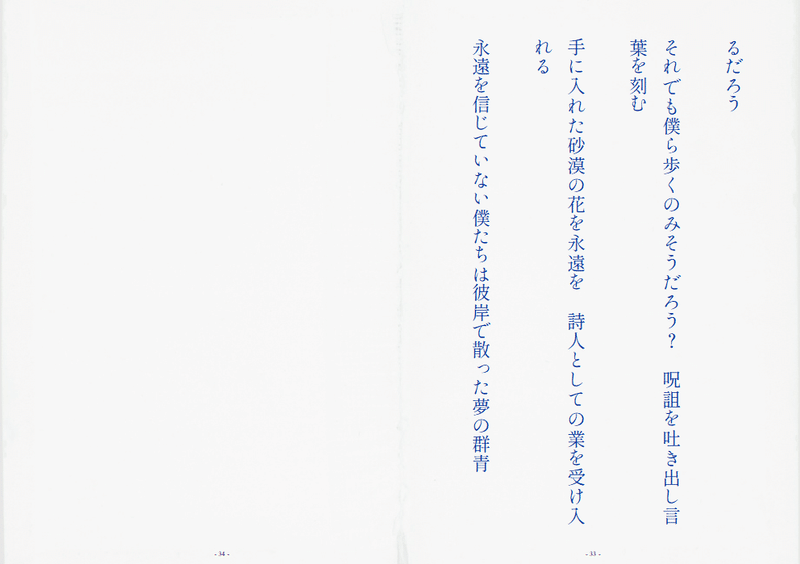 るだろう
それでも僕ら歩くのみそうだろう？　呪詛を吐き出し言
葉を刻む
手に入れた砂漠の花を永遠を　詩人としての業を受け入
れる
永遠を信じていない僕たちは彼岸で散った夢の群青
- 33 -
- 34 -